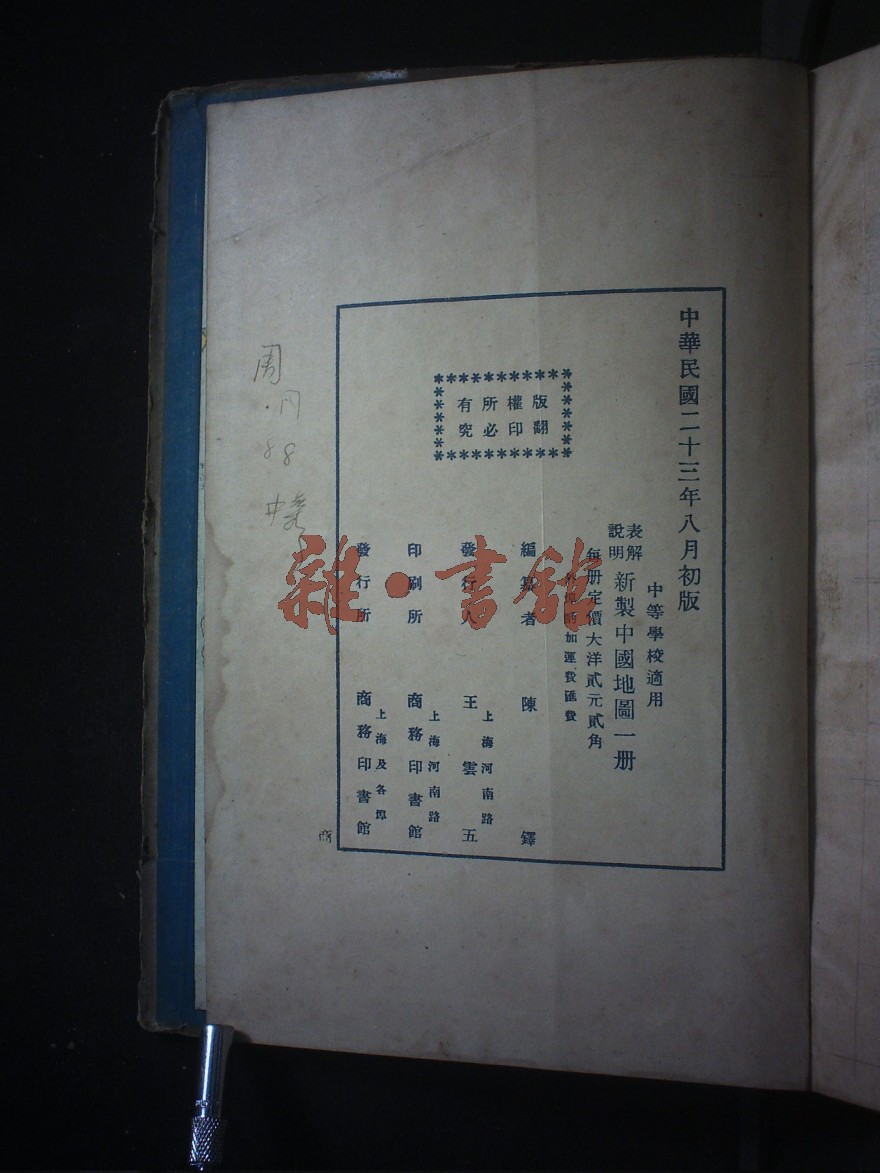 中華民國二十三年八月初版
中等學校適用
表解
說明
新製中國地圖一册
每册定價大洋貳元貳角
加運費匯費
版權所有
翻印必究
編纂者 陳鐸
上海河南路
發行人 王雲五
上海河南路
印刷所 商務印書館
上海及各埠
發行所 商務印書館
商
周
88
雜·書館